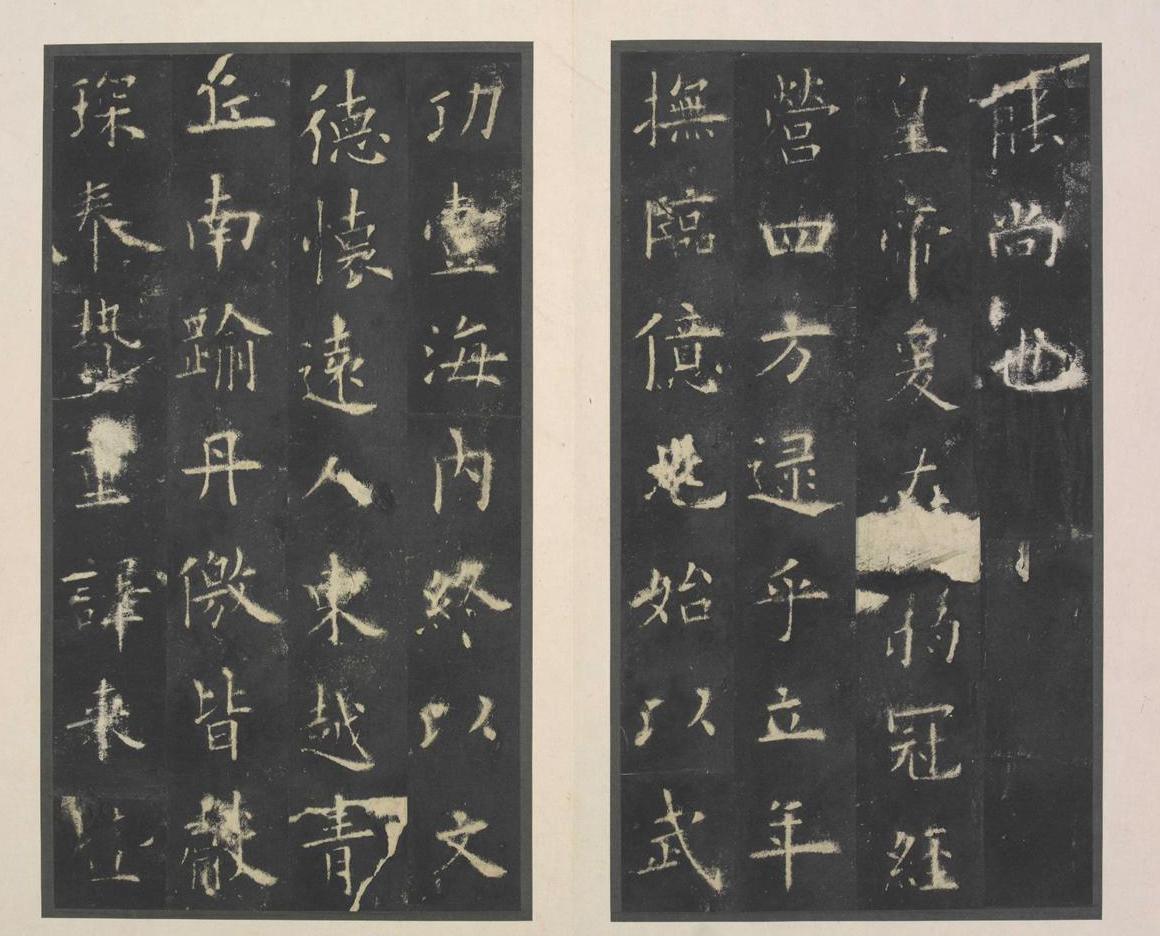 能尚也
皇帝爰在弱冠經
營四方逮乎立年
撫臨億兆始以武
功壹海內終以文
德懷遠人東越青
丘南踰丹徼皆獻
琛奉贄重譯來